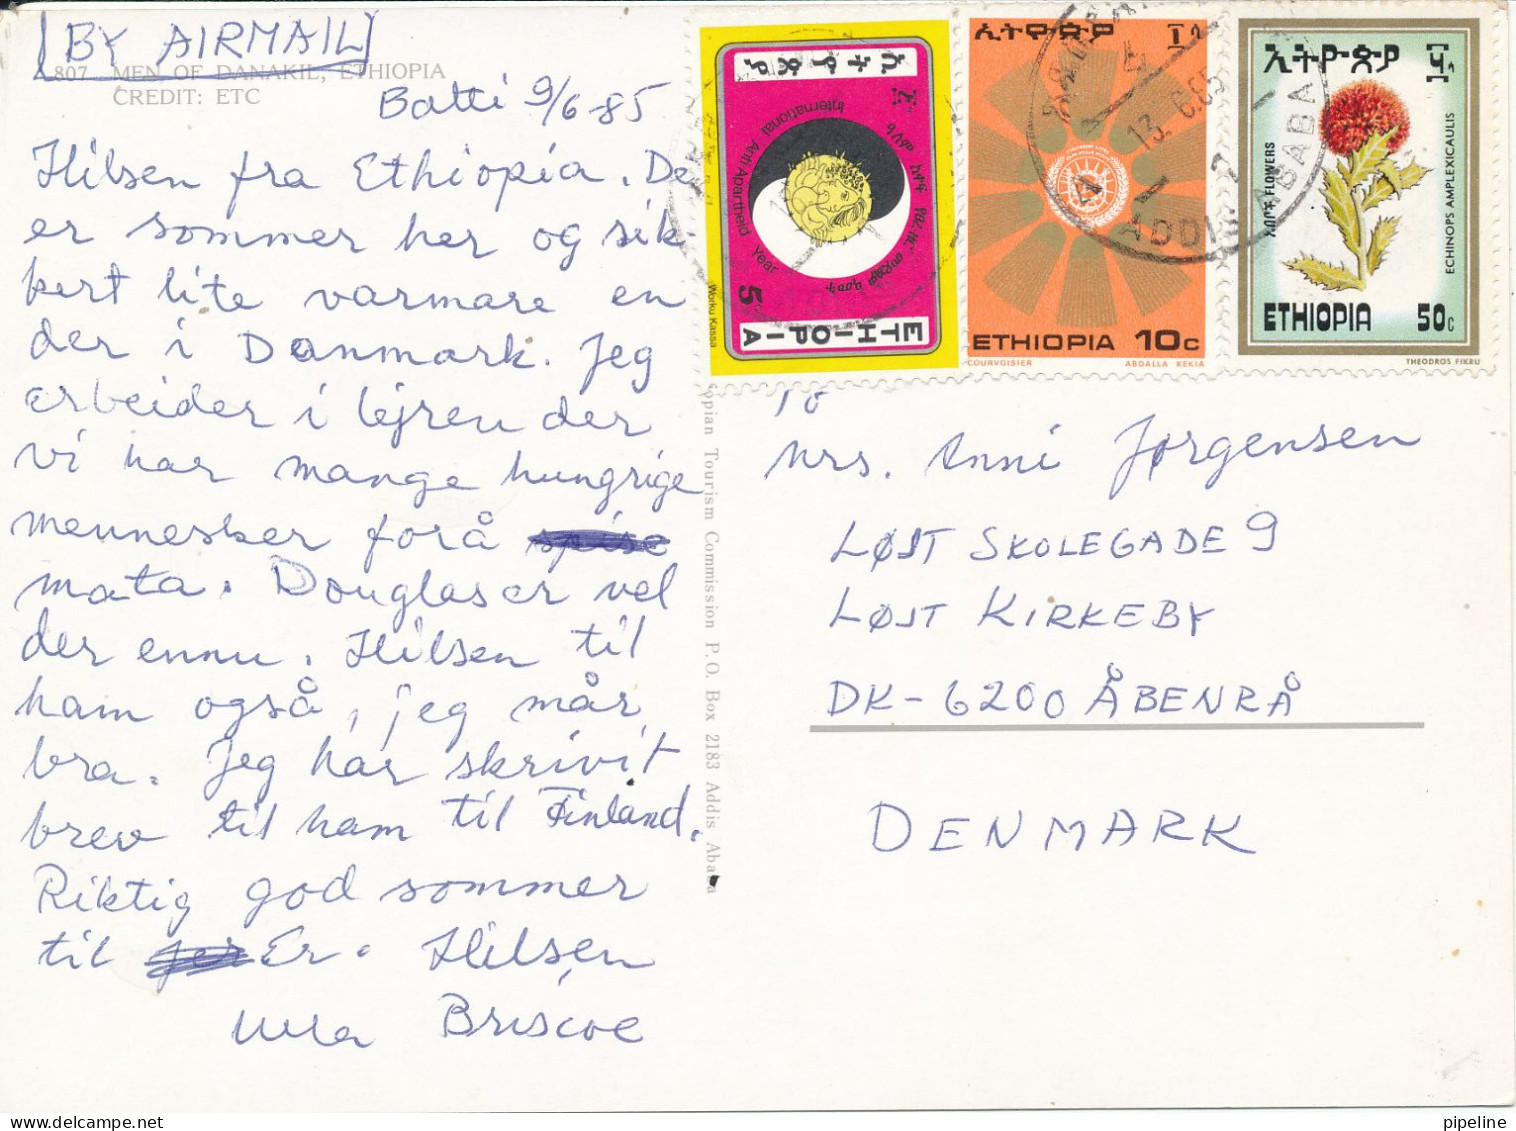 BY AIRMAIL
807 MEN OF DANAKIL, ETHIOPIA
CREDIT: ETC
Batti 9/6-85
Hilsen fra Ethiopia. De
er sommer her og sik
kert lite varmare en
der i Danmark. Jeg
arbeider i lejren der
vi har mange hungrige
mennesker forå
mata. Douglas er vel
der ennu. Hilsen til
ham også, jeg mår
bra. Jeg har skrivit
brev til ham til Finland.
Riktig god sommer
til Er. Hilsen
Briscoe
opian Tourism Commission P.O. Box 2183 Addis Aba
ኢትዮጵያ
International Anti Apartheid Year
Worku Kassa
5
ETHIOPIA
ኢትዮጵያ
ETHIOPIA 10c
COURVOISIER ABDALLA KEKIA
ኢትዮጵያ
FLOWERS
ECHINOPS AMPLEXICAULIS
ETHIOPIA 50c
THEODROS FIKRU
13.6.85
ADDIS ABABA
To
Mrs. Anni Jørgensen
LØJT SKOLEGADE 9
LØJT KIRKEBY
DK-6200 ÅBENRÅ
DENMARK
pipeline